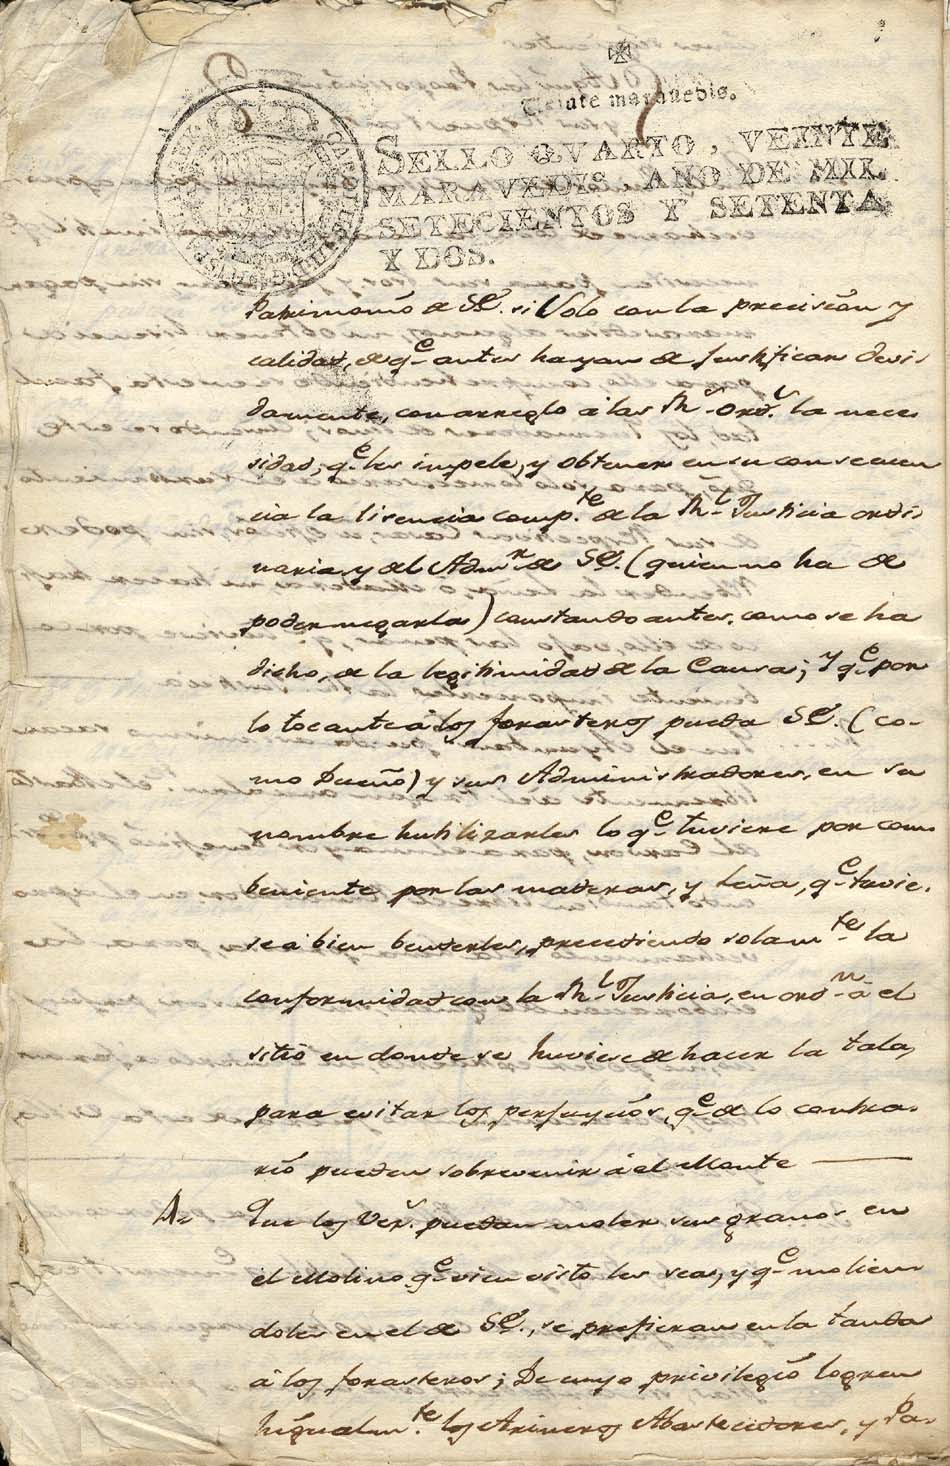 Veinte maravedis.
SELLO QVARTO, VEINTE
MARAVEDIS, AÑO DE MIL
SETECIENTOS Y SETENTA
Y DOS.
Patrimonio de Sê. si Solo con la precision y
calidad, de qe. antes hayan de justificar devi-
damente, con arreglo â las Rs. Ords. la nece-
sidad, qe. les impele, y obtener en su consecuen
cia la licencia compte. de la Rl. Justicia ordi-
naria, y del Admor. de Sê. (quien no ha de
poder negarlas) constando antes, como se ha
dicho, de la legitimidad de la Causa; Y qe. por
lo tocante â los forasteros pueda Sê. (co-
mo Dueño) y sus Administradores, en su
nombre hutilizarles lo qe. tuviere por com
beniente por las maderas, y Leña, qe. tuvie-
se â bien benderles, precediendo solamte. la
conformidad con la Rl. Justicia, en orn. â el
sitio en donde se huviese de hacer la tala,
para evitar los perjuycios, qe. de lo contra-
rio pueden sobrevenir â el Monte
4a Que los Vezs. puedan moler sus granos en
el Molino qe. vien visto les sea, y qe. molien
doles en el de Sê., se prefieran en la tanda
â los forasteros; De cuyo privilegio logren
higualmte. los Arineros Abastecedores, y Pa-